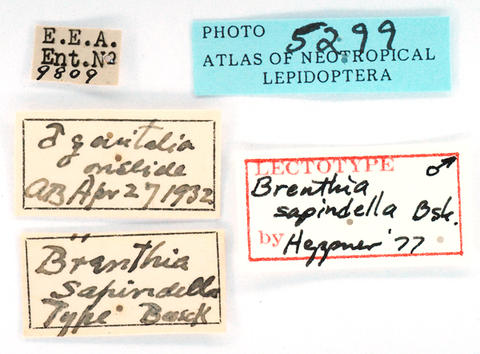 E.E.A.
Ent. No
9809
PHOTO 5299
ATLAS OF NEOTROPICAL
LEPIDOPTERA
♂ genitalia
on slide
AB Apr 27 1932
LECTOTYPE ♂
Brenthia
sapindella Bsk.
by Heppner '77
Brenthia
Sapindella
Type Busck